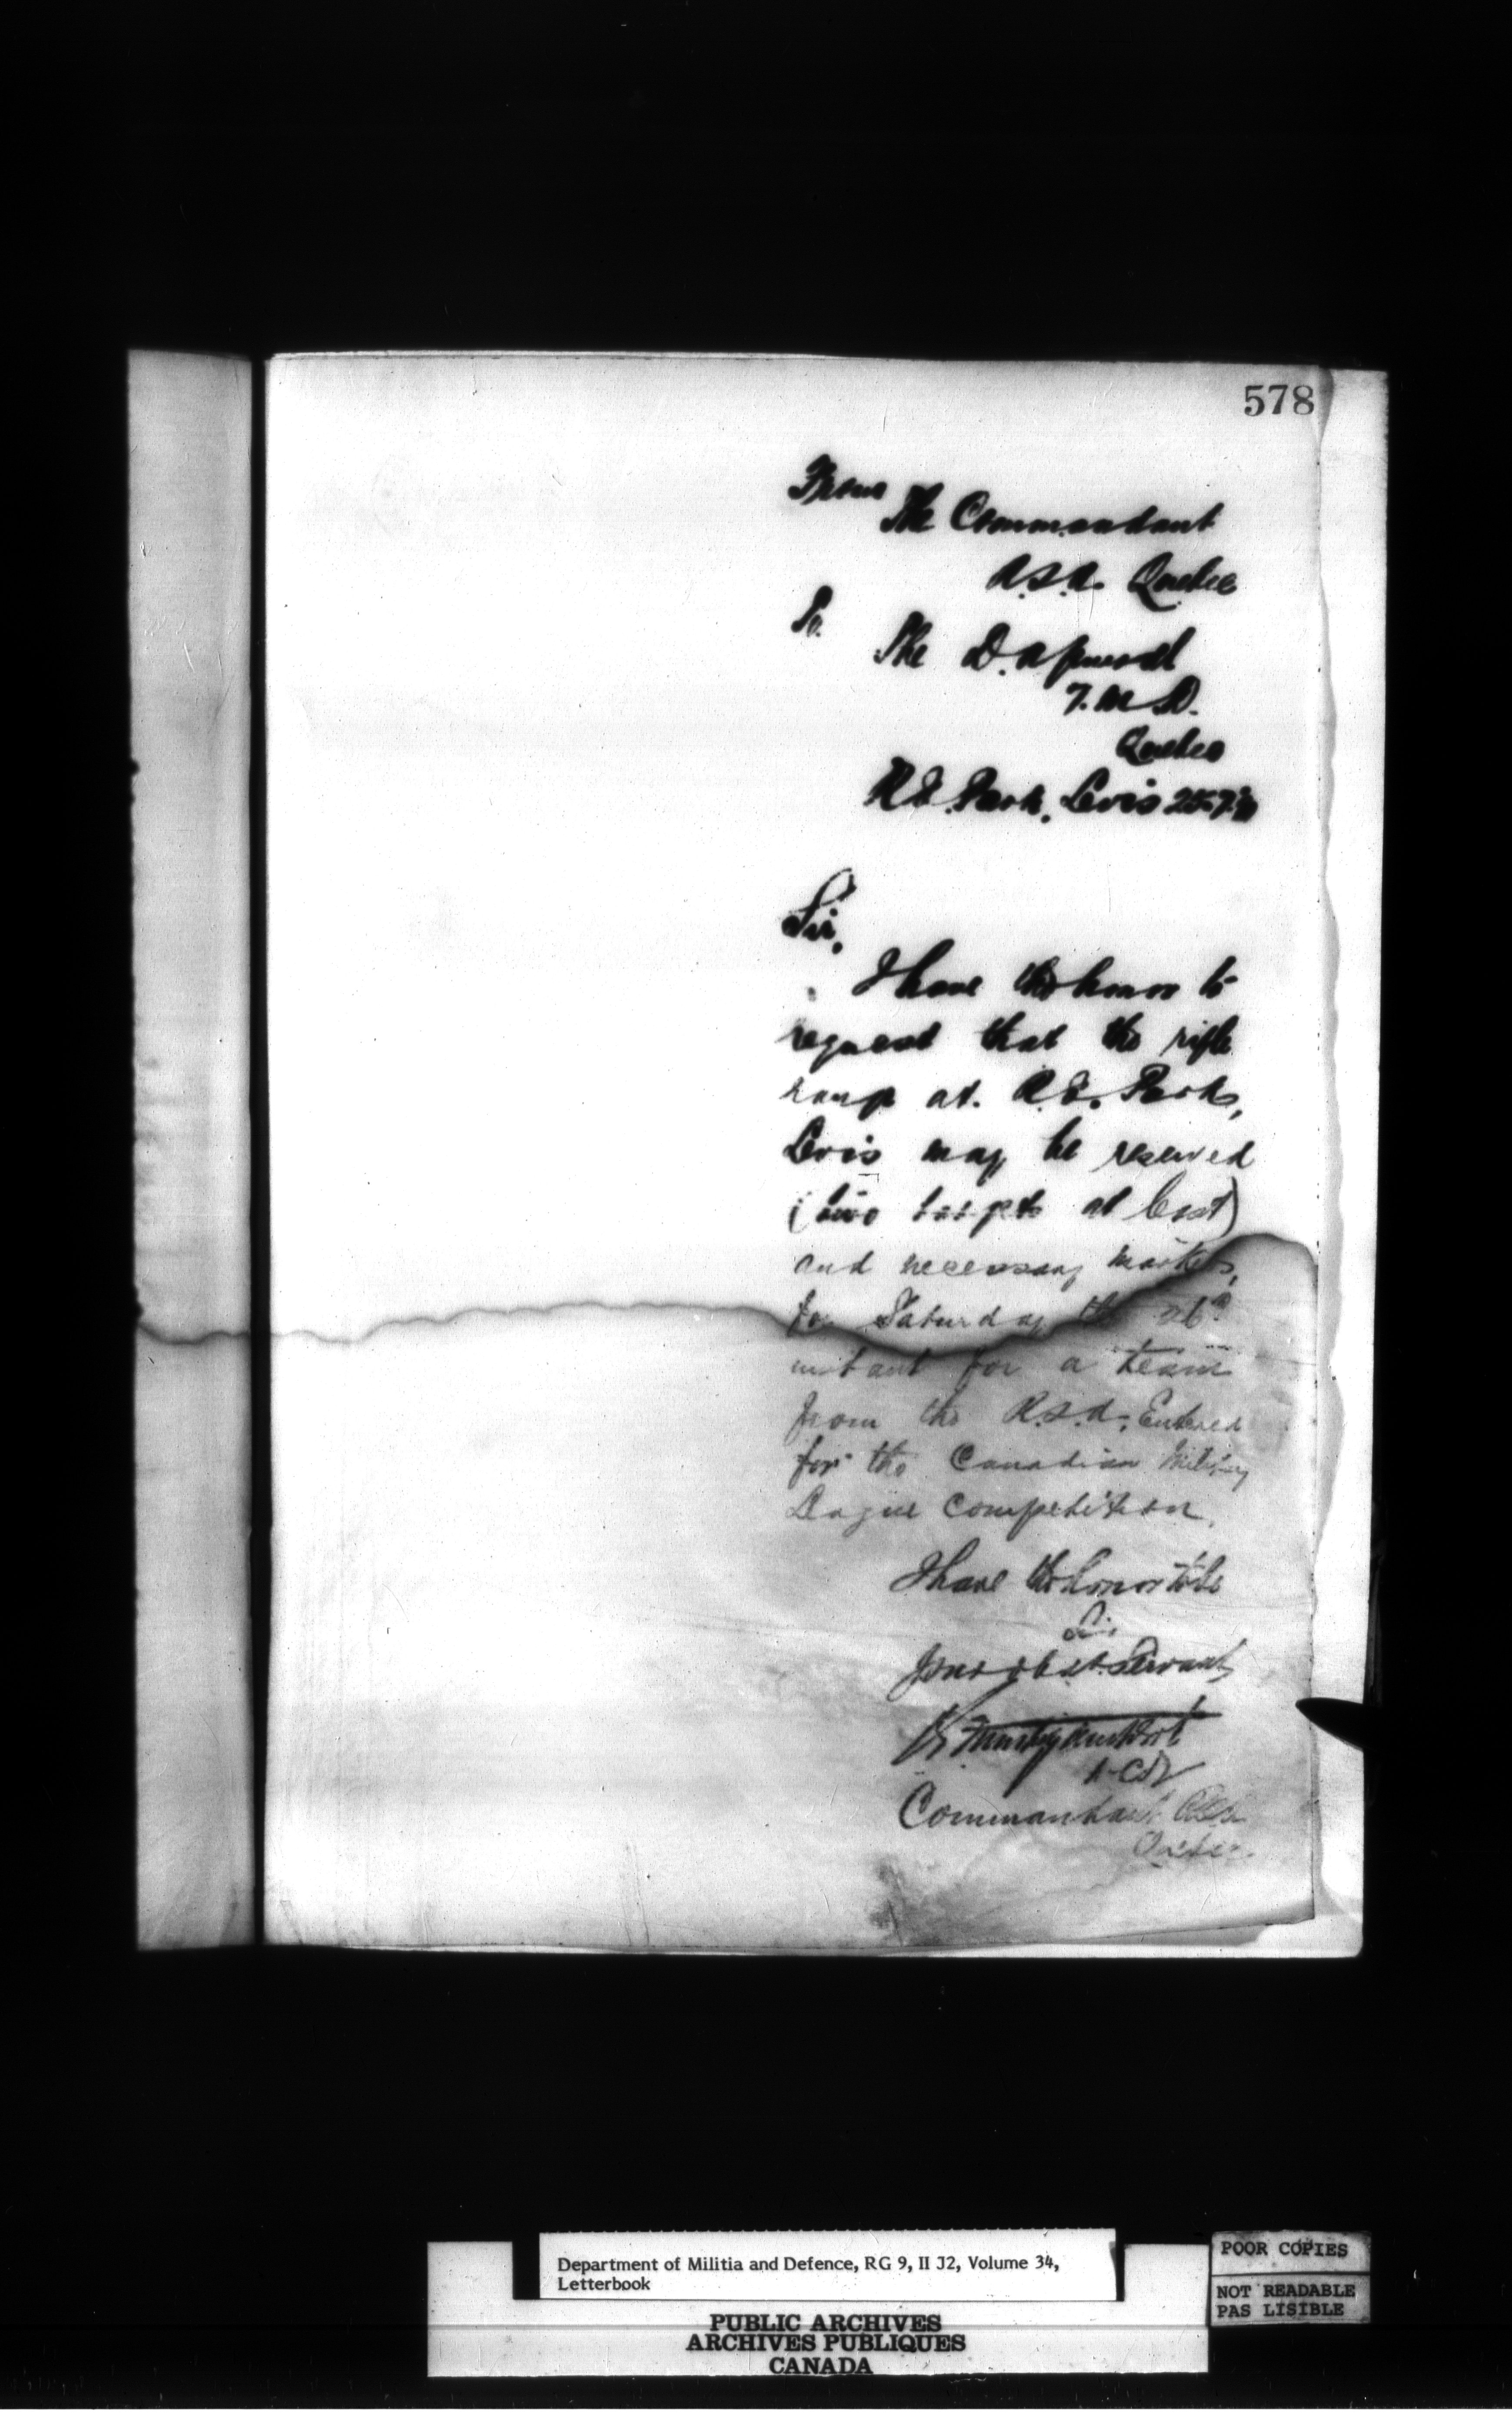 578
From
The Commandant
R.S.A. Quebec
To.
The D. A
7. M D.
Quebec
R.E. Park, Levis 25.7.
Sir,
I have the honor to
request that the rifle
range at R.E. Park,
Levis may be reserved
(two targets at least)
and necessary markers,
for Saturday the 26th
instant for a team
from the R.S.A. Entered
for the Canadian Military
League Competition.
I have the honor to be
Sir,
Your obdt. Servant
Commandant RSA
Quebec.
Department of Militia and Defence, RG 9, II J2, Volume 34,
Letterbook
PUBLIC ARCHIVES
ARCHIVES PUBLIQUES
CANADA
POOR COPIES
NOT READABLE
PAS LISIBLE